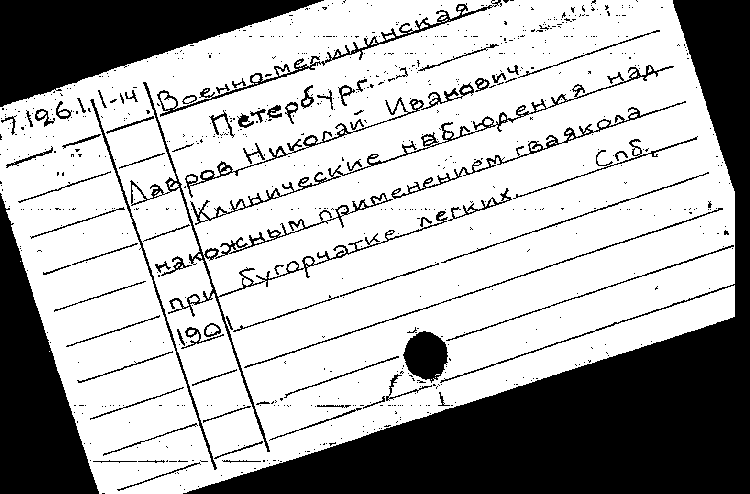 7.1261. 1-14 Военно-медицинская
Петербург.
Лавров, Николай Иванович.
Клинические наблюдения над
накожным применением гваякола
при бугорчатке легких. Спб.
1901.